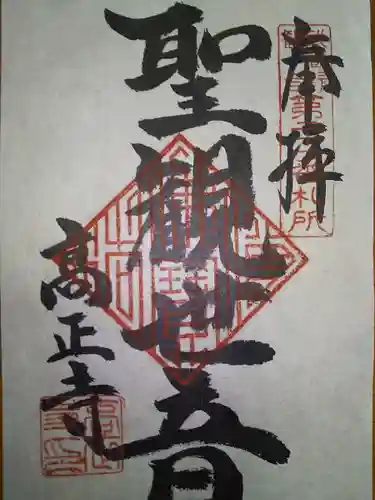 奉拝
聖観世音
高正寺